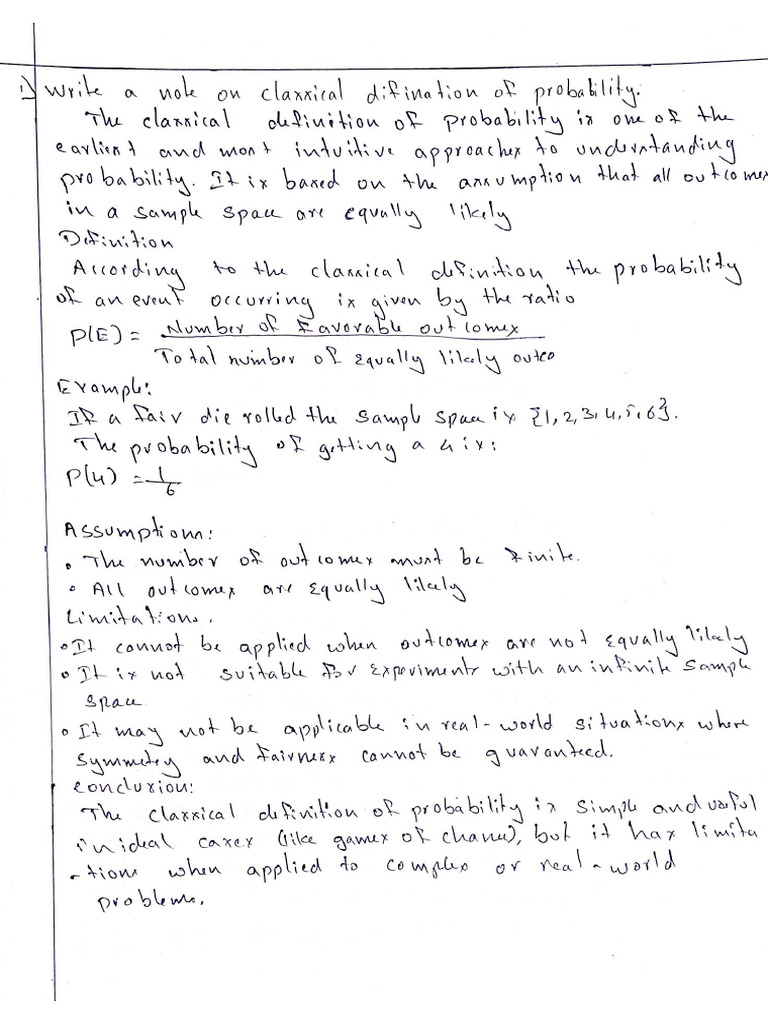 1) Write a note on classical difination of probability.
The classical definition of probability is one of the
earliest and most intuitive approaches to understanding
probability. It is based on the assumption that all outcomes
in a sample space are equally likely
Definition
According to the classical definition the probability
of an event occurring is given by the ratio
P(E) = Number of Favorable outcomes
Total number of equally likely outco
Example:
If a fair die rolled the sample space is {1,2,3,4,5,6}.
The probability of getting a 4 is:
P(4) = 1
6
Assumptions:
• The number of outcomes must be finite.
• All outcomes are equally likely
Limitations.
• It cannot be applied when outcomes are not equally likely
• It is not suitable for experiments with an infinite sample
space.
• It may not be applicable in real-world situations where
symmetry and fairness cannot be guaranteed.
Conclusion:
The classical definition of probability is simple and useful
in ideal cases (like games of chance), but it has limita
-tions when applied to complex or real-world
problems.